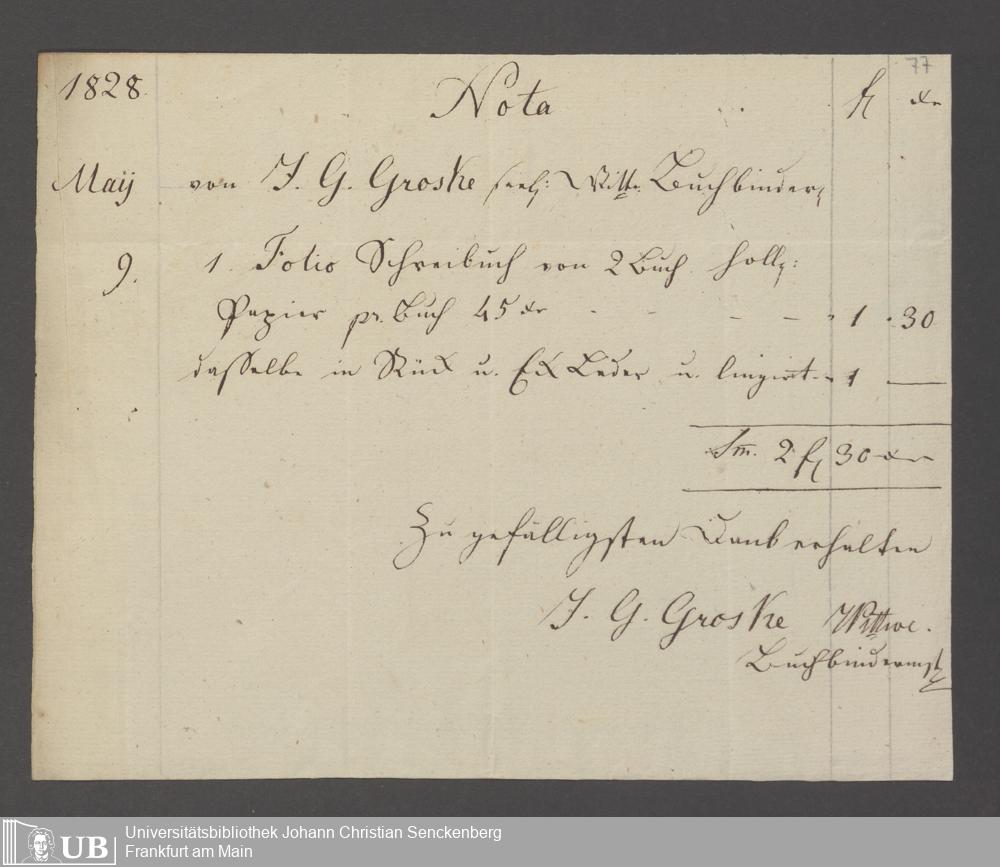 77
1828. Nota fl xr
Maÿ von J. G. Groske seel: Witte. Buchbinder,
9. 1. Folio Schreibuch von 2 Buch holl:
Papier pr. Buch 45 xr - - - - " 1 . 30
dasselbe in Rück u. Eck Leder u. lingirt - " 1 —
Sm. 2 fl 30 xr
Zu gefälligsten Dank erhalten
J. G. Groske Wittwe.
Buchbindermstr
UB Universitätsbibliothek Johann Christian Senckenberg
Frankfurt am Main